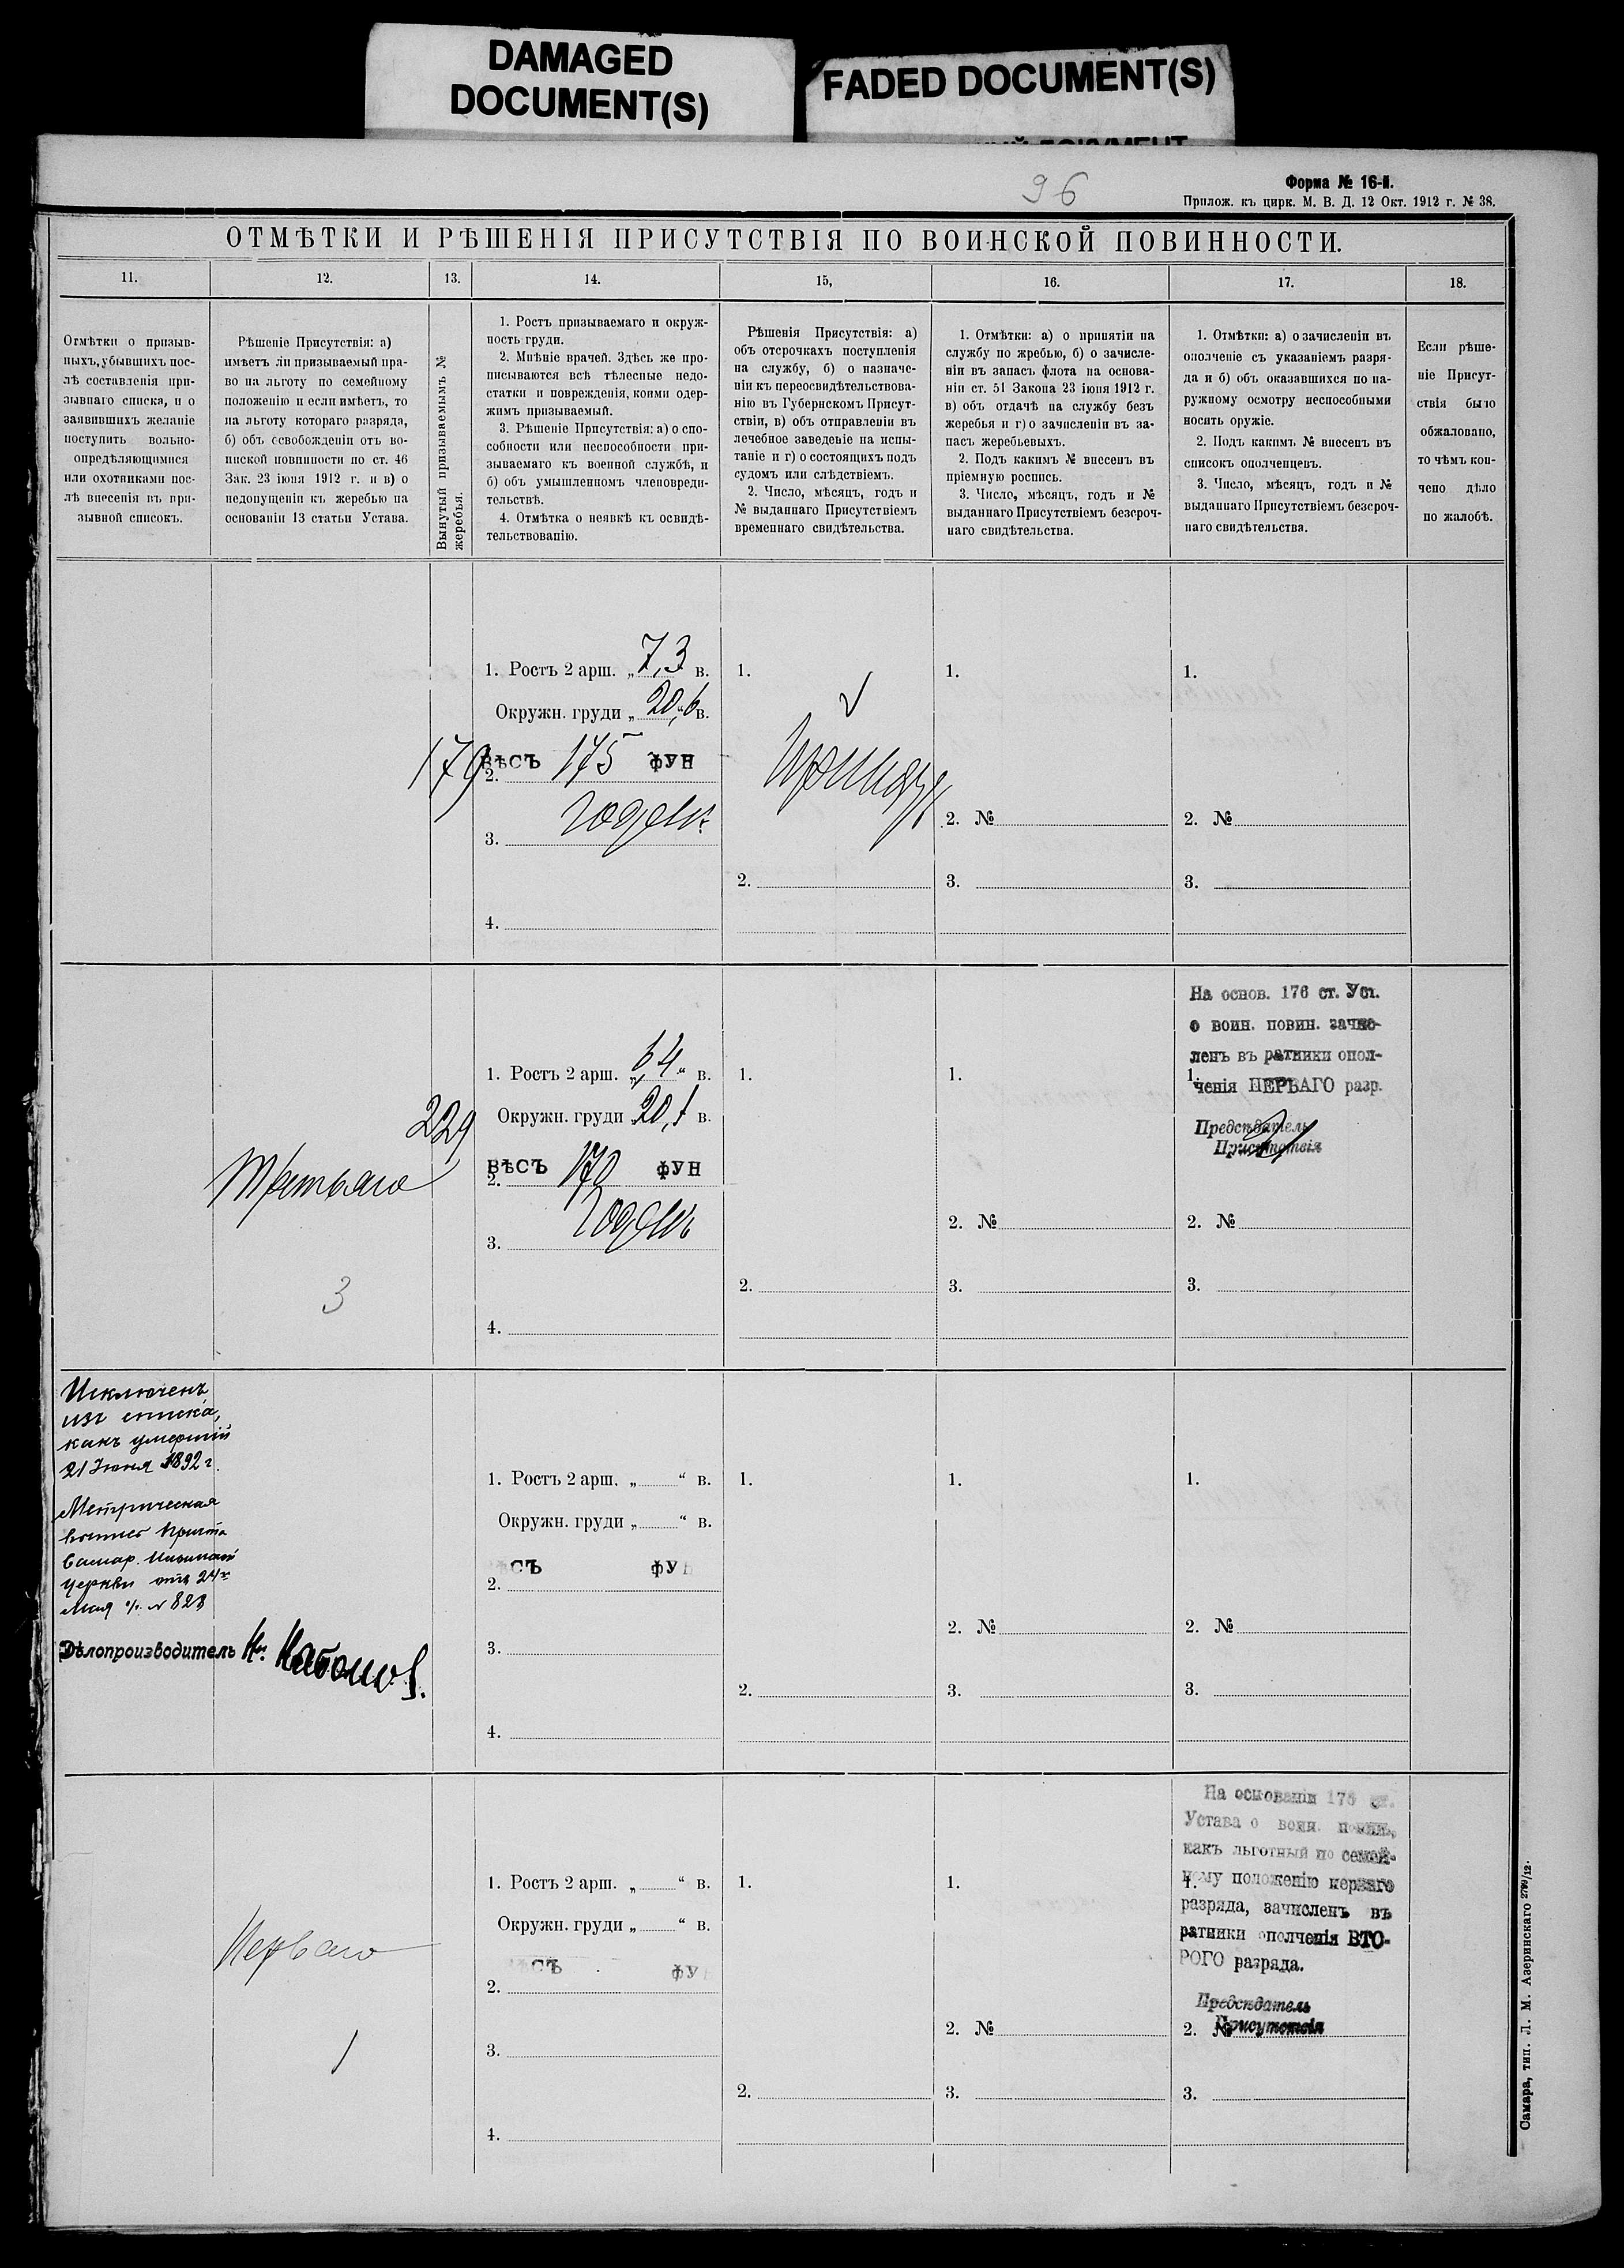 DAMAGED
DOCUMENT(S)
FADED DOCUMENT(S)
96
Форма № 16-й.
Прилож. къ цирк. М. В. Д. 12 Окт. 1912 г. № 38.
ОТМѢТКИ И РѢШЕНІЯ ПРИСУТСТВІЯ ПО ВОИНСКОЙ ПОВИННОСТИ.
11.
12.
13.
14.
15,
16.
17.
18.
Отмѣтки о призыв-
ныхъ, убывшихъ пос-
лѣ составленія при-
зывнаго списка, и о
заявившихъ желаніе
поступить вольно-
опредѣляющимися
или охотниками пос-
лѣ внесенія въ при-
зывной списокъ.
Рѣшеніе Присутствія: а)
имѣетъ ли призываемый пра-
во на льготу по семейному
положенію и если имѣетъ, то
на льготу котораго разряда,
б) объ освобожденіи отъ во-
инской повинности по ст. 46
Зак. 23 іюня 1912 г. и в) о
недопущеніи къ жеребью на
основаніи 13 статьи Устава.
Вынутый призываемымъ №
жеребья.
1. Ростъ призываемаго и окруж-
ность груди.
2. Мнѣніе врачей. Здѣсь же про-
писываются всѣ тѣлесные недо-
статки и поврежденія, коими одер-
жимъ призываемый.
3. Рѣшеніе Присутствія: а) о спо-
собности или неспособности при-
зываемаго къ военной службѣ, и
б) объ умышленномъ членовреди-
тельствѣ.
4. Отмѣтка о неявкѣ къ освидѣ-
тельствованію.
Рѣшенія Присутствія: а)
объ отсрочкахъ поступленія
на службу, б) о назначе-
ніи къ переосвидѣтельствова-
нію въ Губернскомъ Присут-
ствіи, в) объ отправленіи въ
лечебное заведеніе на испы-
таніе и г) о состоящихъ подъ
судомъ или слѣдствіемъ.
2. Число, мѣсяцъ, годъ и
№ выданнаго Присутствіемъ
временнаго свидѣтельства.
1. Отмѣтки: а) о принятіи на
службу по жребью, б) о зачисле-
ніи въ запасъ флота на основа-
ніи ст. 51 Закона 23 іюня 1912 г.
в) объ отдачѣ на службу безъ
жеребья и г) о зачисленіи въ за-
пасъ жеребьевыхъ.
2. Подъ какимъ № внесенъ въ
пріемную роспись.
3. Число, мѣсяцъ, годъ и №
выданнаго Присутствіемъ безсроч-
наго свидѣтельства.
1. Отмѣтки: а) о зачисленіи въ
ополченіе съ указаніемъ разря-
да и б) объ оказавшихся по на-
ружному осмотру неспособными
носить оружіе.
2. Подъ какимъ № внесенъ въ
списокъ ополченцевъ.
3. Число, мѣсяцъ, годъ и №
выданнаго Присутствіемъ безсроч-
наго свидѣтельства.
Если рѣше-
ніе Присут-
ствія было
обжаловано,
то чѣмъ кон-
чено дѣло
по жалобѣ.
179
1. Ростъ 2 арш. „ 7,3 в.
Окружн. груди „ 20,6 в.
ВѢСЪ 175 ФУН
2.
3. годенъ
4.
1.
Принять
2.
1.
2. №
3.
1.
2. №
3.
Третьяго
3
229
1. Ростъ 2 арш. „ 6,4 “ в.
Окружн. груди 20,1 в.
ВѢСЪ 170 ФУН
2.
3. годенъ
4.
1.
2.
1.
2. №
3.
На основ. 176 ст. Уст.
о воин. повин. зачис-
ленъ въ ратники опол-
1. ченія ПЕРВАГО разр.
Предсѣдатель
Присутствія
2. №
3.
Исключенъ
изъ списка,
какъ умершій
21 Іюня 1892 г.
Метрическая
выпись причта
Самар.
церкви отъ 24го
Мая № 823
Дѣлопроизводитель
1. Ростъ 2 арш. „ “ в.
Окружн. груди „ “ в.
СЪ ФУ
2.
3.
4.
1.
2.
1.
2. №
3.
1.
2. №
3.
Перваго
1
1. Ростъ 2 арш. „ “ в.
Окружн. груди „ “ в.
СЪ ФУ
2.
3.
4.
1.
2.
1.
2. №
3.
На основаніи 176 ст.
Устава о воин. повин.,
какъ льготный по семей-
1. ному положенію перваго
разряда, зачисленъ въ
ратники ополченія ВТО-
РОГО разряда.
Предсѣдатель
Присутствія
2. №
3.
Самара, тип. Л. М. Азеринскаго 2799/12.